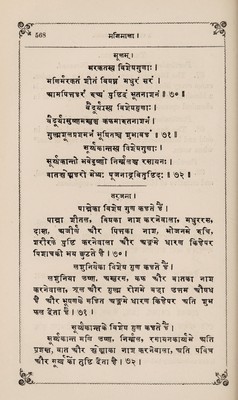 ५६८
मणिमाला ।
मूलम् ।
मरकतस्य विशेषगुणाः ।
मणिर्मरकतं शीतं विषघ्नं मधुरं सरं ।
आमपित्तहरं रुच्यं पुष्टिदं भूतनाशनं ॥ ७० ॥
वैदूर्य्यस्य विशेषगुणाः ।
वैदूर्य्यमुष्णमम्लञ्च कफमारुतनाशनं ।
गुल्मशूलप्रशमनं भूषितञ्च शुभावहं ॥ ७१ ॥
सूर्य्यकान्तस्य विशेषगुणाः ।
सूर्य्यकान्तो भवेदुष्णो निर्म्मलश्च रसायनः ।
वातश्लेष्महरो मेध्यः पूजनाद्रवितुष्टिदः ॥ ७२ ॥
तरजमा ।
पान्नेका विशेष गुण कहते हैं ।
पान्ना शीतल, विषका नाश करनेवाला, मधुररस,
दास्त, अजीर्ण और पित्तका नाश, भोजनमें रुचि,
शरीरके पुष्टि करनेवाला और अङ्गमें धारण किएपर
पिशाचको भय छुटते हैं । ७० ।
लशुनियेका विशेष गुण कहते हैं ।
लशुनिया उष्ण, अम्लरस, कफ और वातका नाश
करनेवाला, शूल और गुल्म रोगमें बड़ा उत्तम औषध
है और भूषणके सहित अङ्गमें धारण किएपर अति शुभ
फल देता है । ७१ ।
सूर्य्यकान्तके विशेष गुण कहते हैं ।
सूर्य्यकान्त मणि उष्ण, निर्म्मल, रसायनकार्य्यमें अति
प्रशस्त, वात और श्लेष्माका नाश करनेवाला, अति पवित्र
और सूर्य्यको तुष्टि देता है । ७२ ।